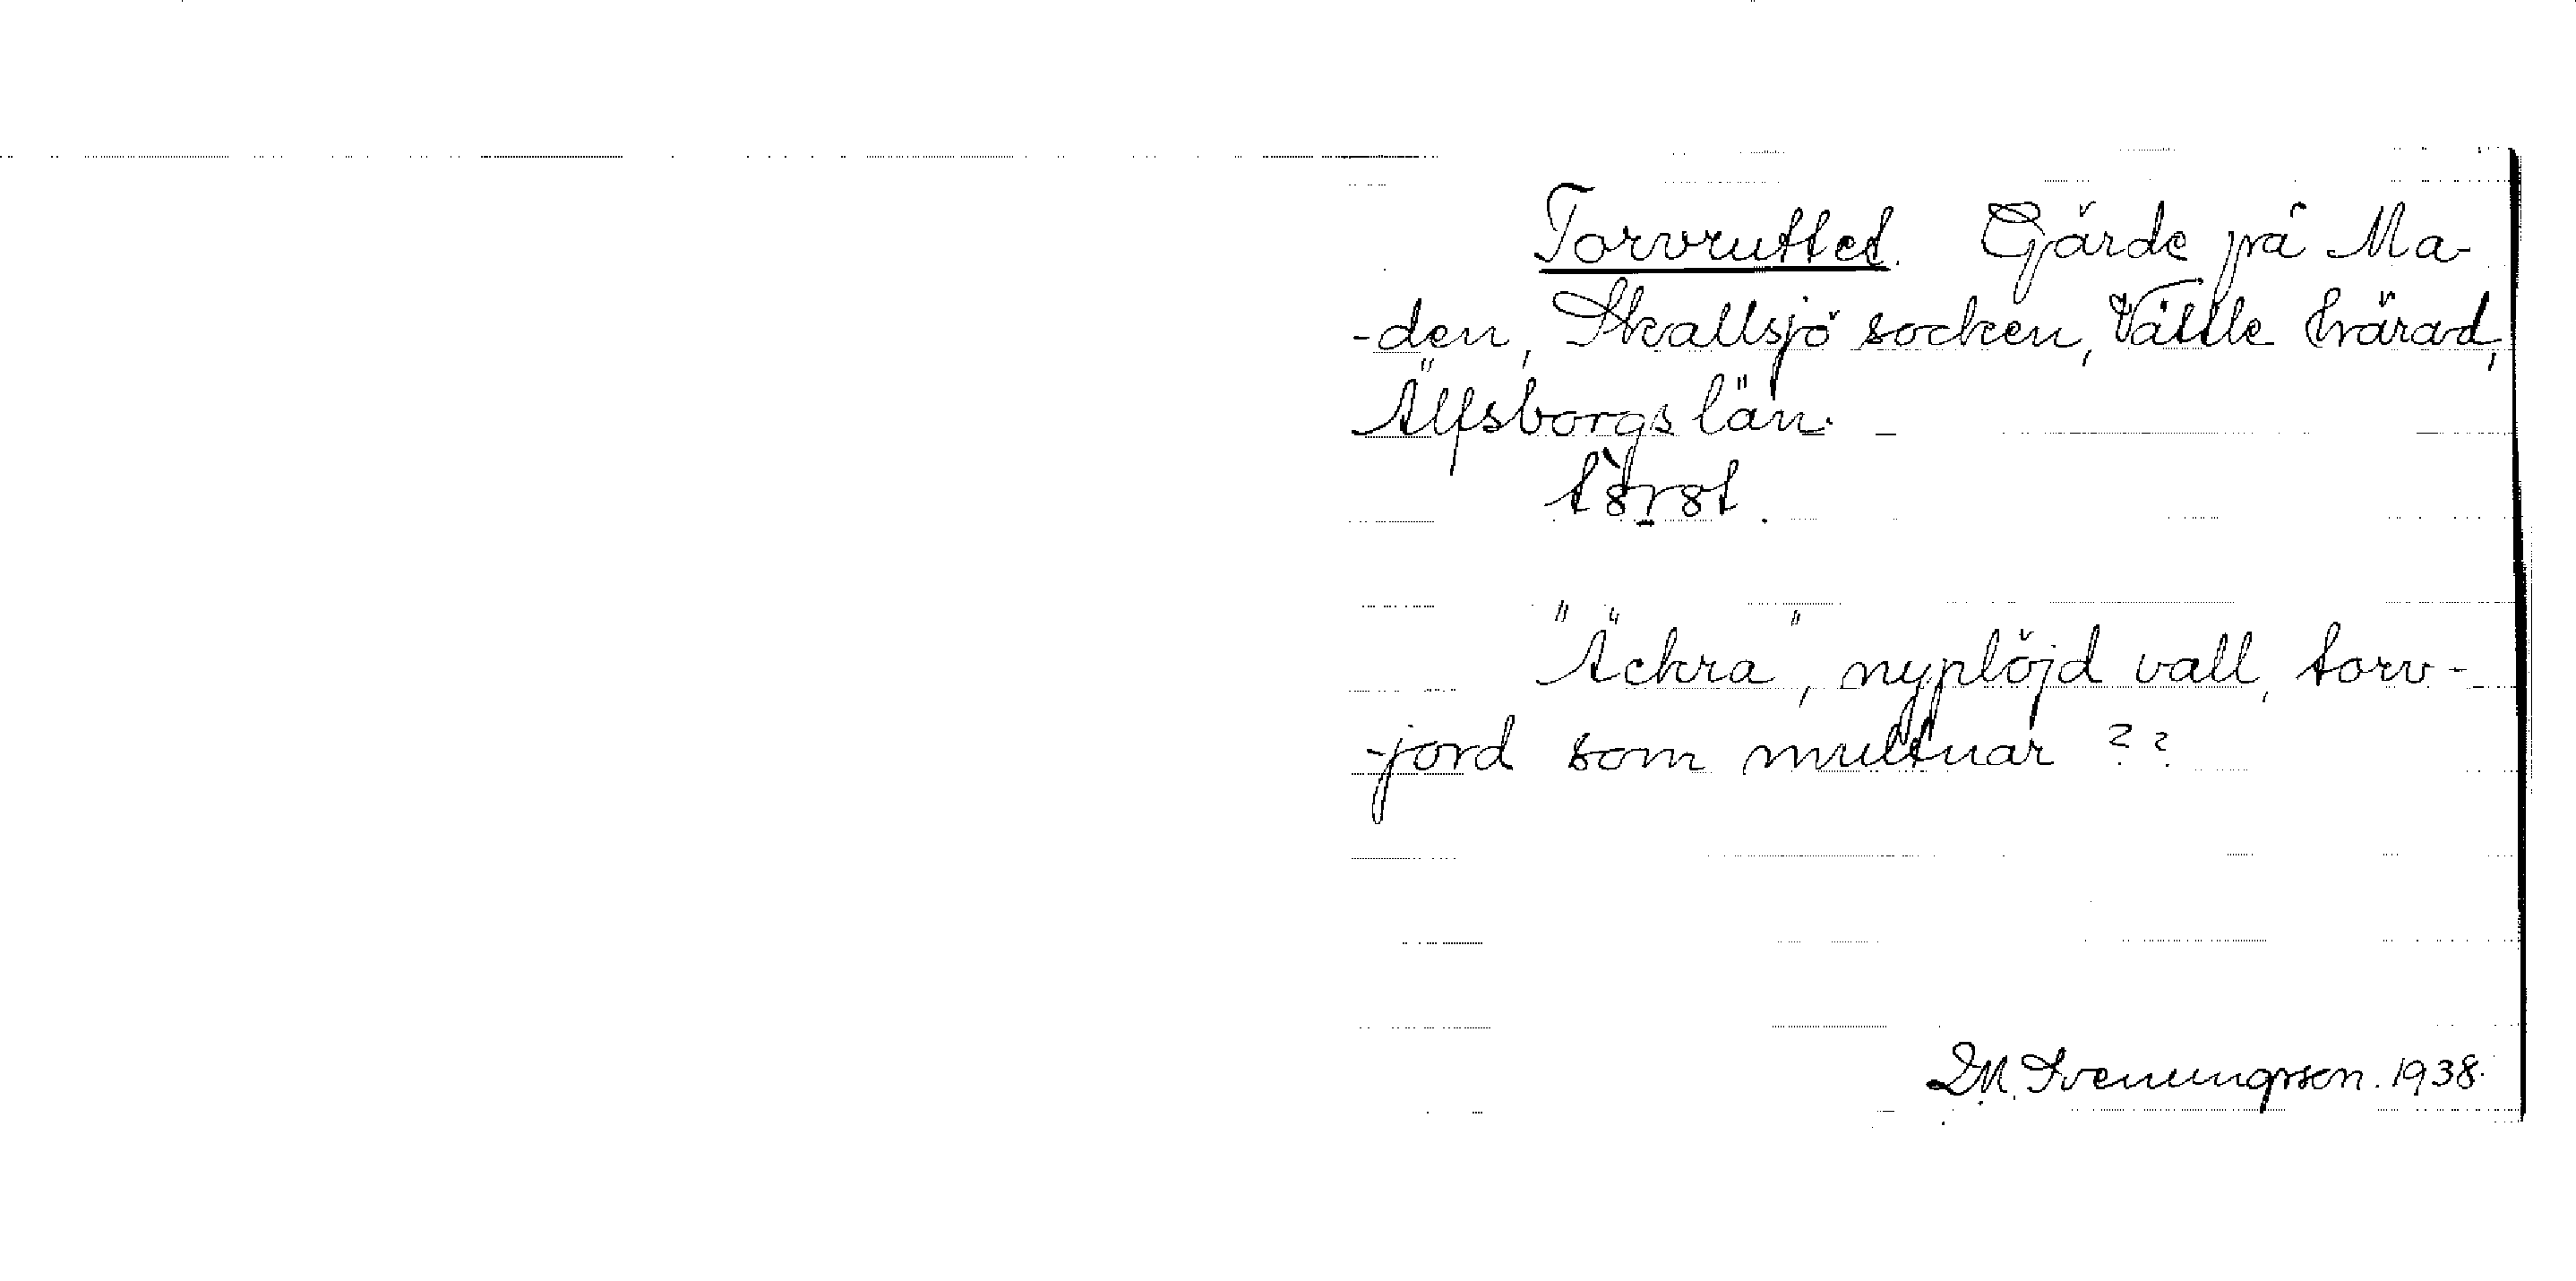 Torvruttet. Gärde på Ma-
-den, Skallsjö socken, Vättle härad,
Älfsborgs län. -
"Äckra", nyplöjd vall, torv-
-jord som multnar ??
D.M. Svenungsson. 1938.